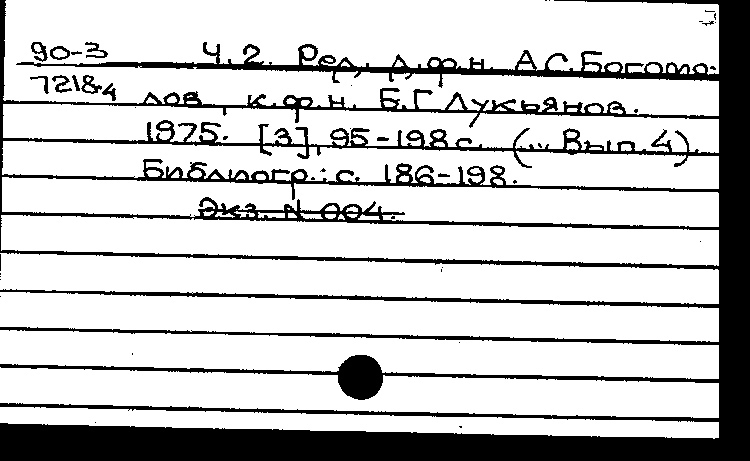 90-3 Ч.2. Ред. д.ф.н. А.С.Богомо-
7218-4 лов, к.ф.н. Б.Г.Лукьянов.
1975. [3], 95-198 с. (... Вып. 4).
Библиогр.: с. 186-198.
Экз. N 004.